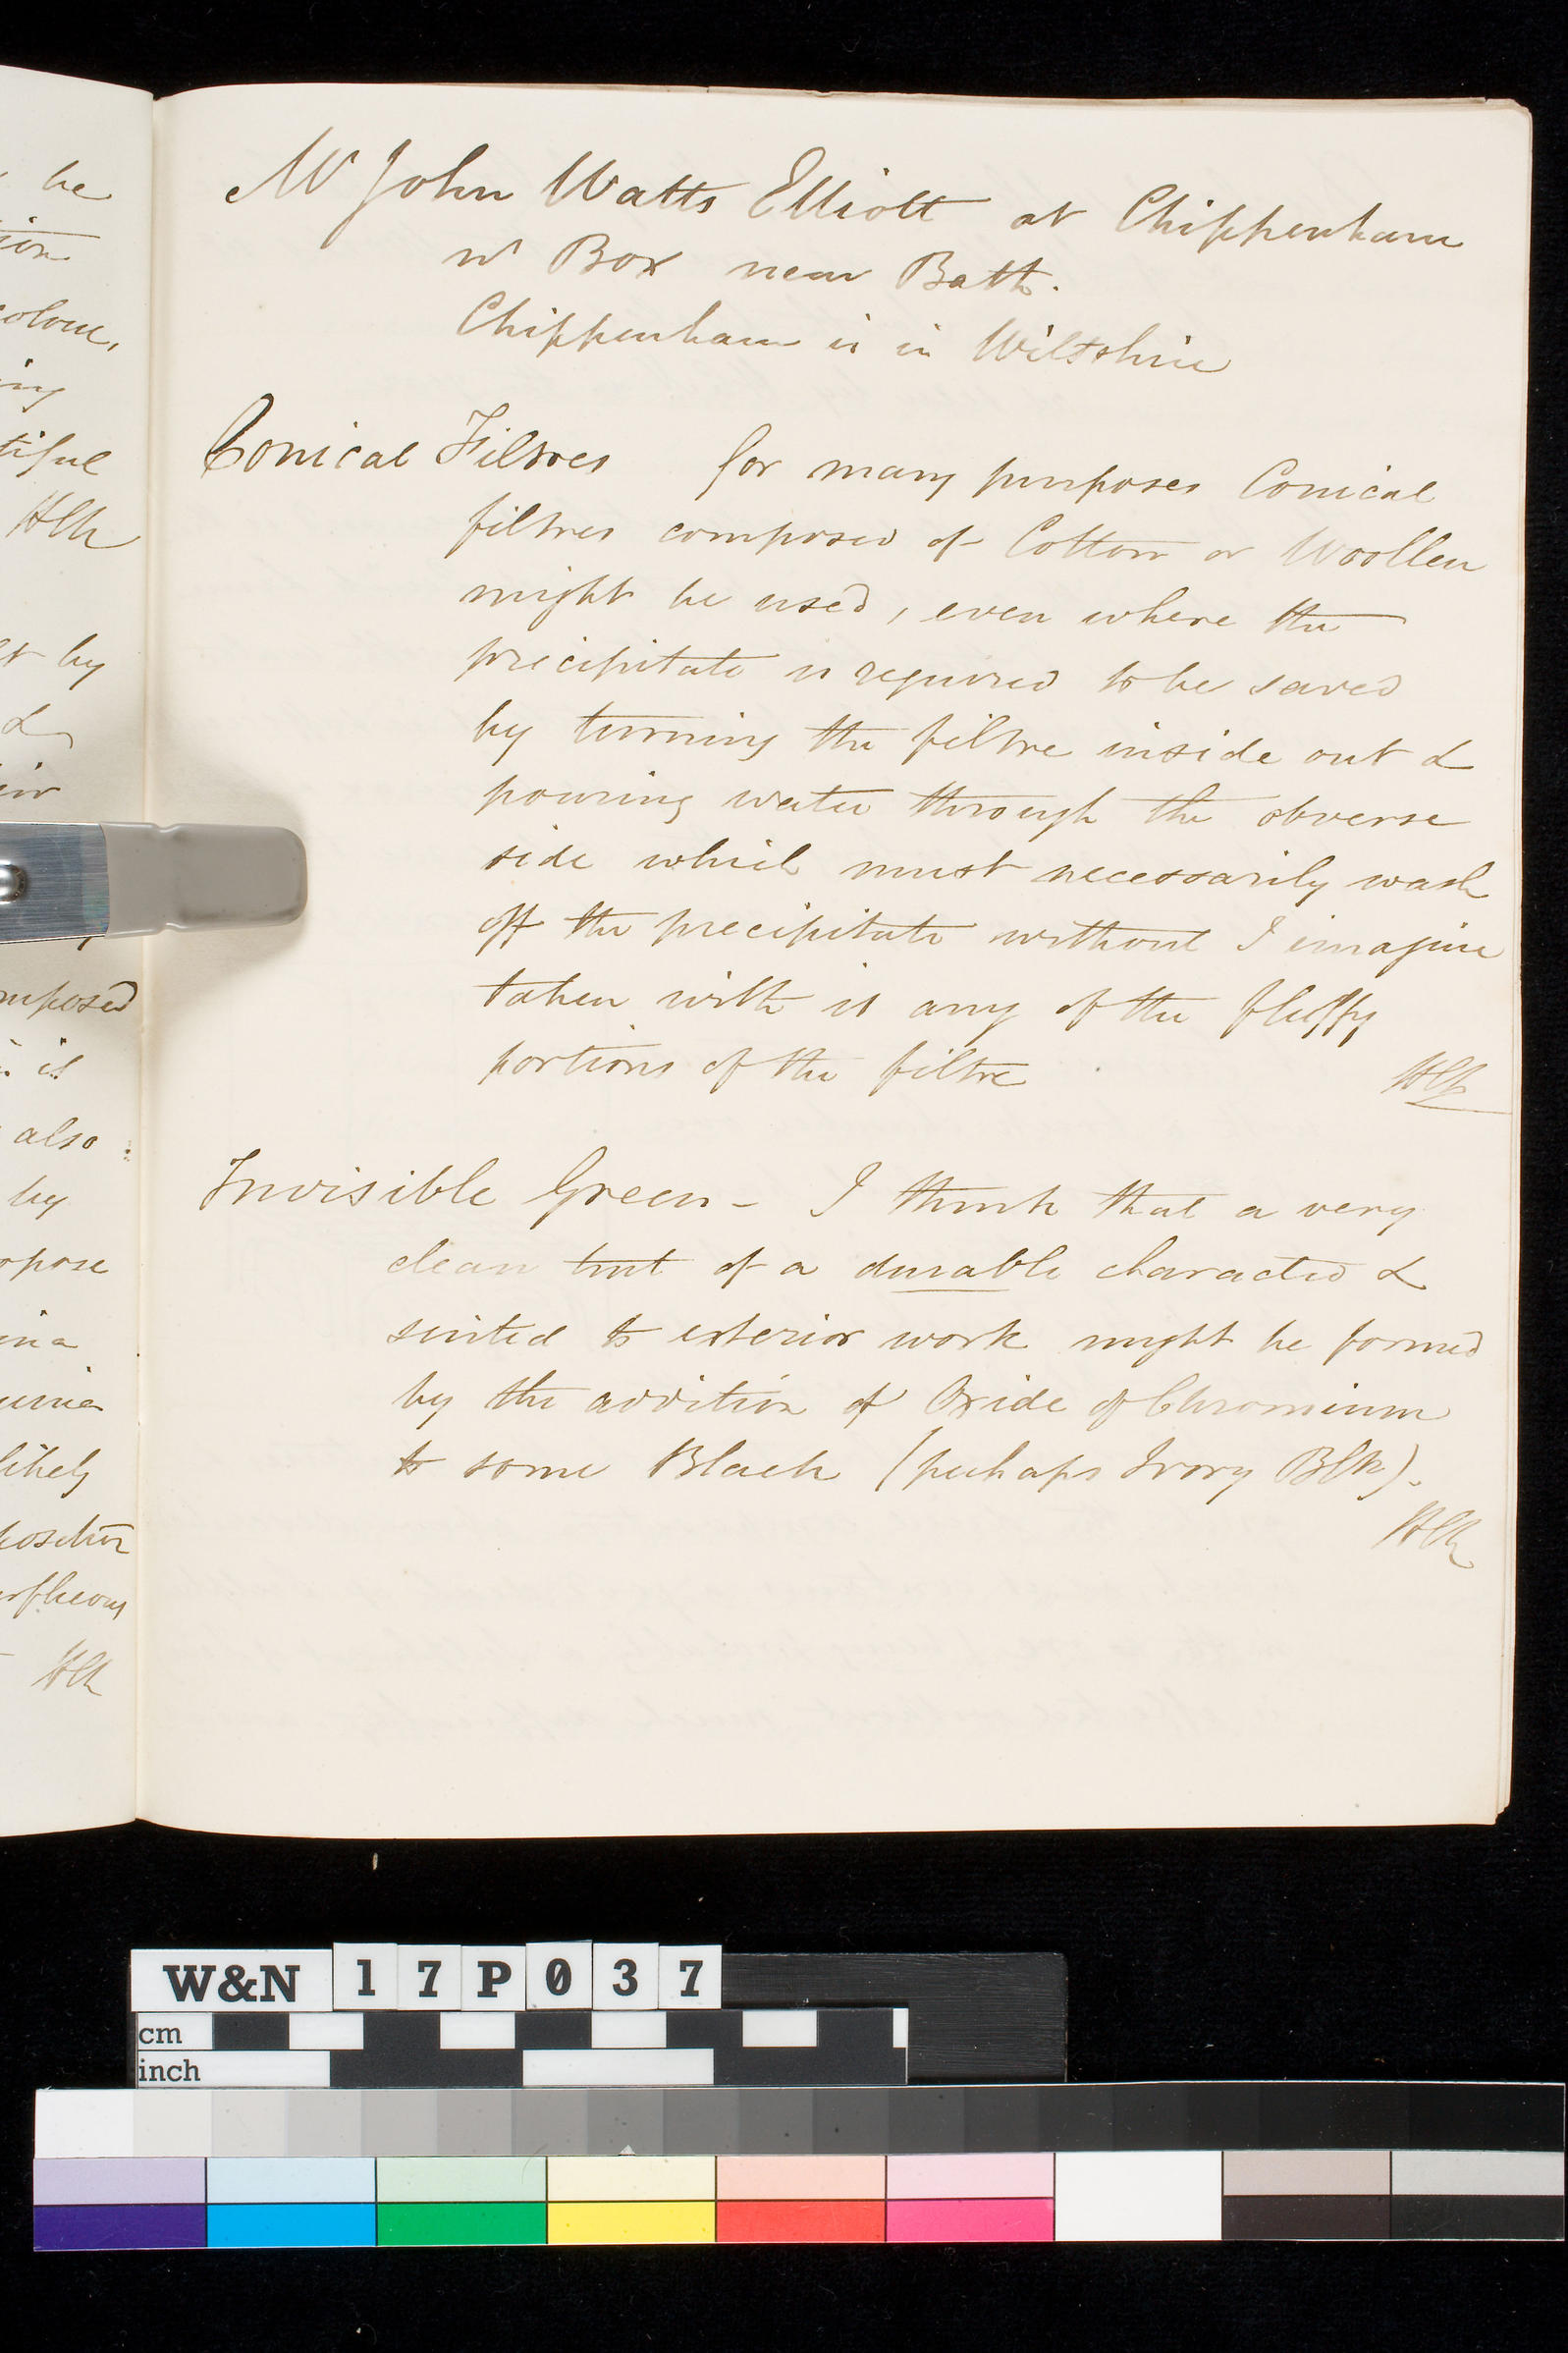 be
tion
colour,
ing
tiful
HCN
by
&
composed
is it
also
by
opose
ina
likely
position
HCN
Mr John Watts Elliott at Chippenham
nr Box near Bath.
Chippenham is in Wiltshire
Conical Filtres for many purposes Conical
filtres composed of Cotton or Woollen
might be used, even where the
precipitate is required to be saved
by turning the filtre inside out &
pouring water through the obverse
side which must necessarily wash
off the precipitate without I imagine
taken with it any of the fluffy
portions of the filtre
HCN
Invisible Green - I think that a very
clean tint of a durable character &
suited to exterior work might be formed
by the addition of Oxide of Chromium
to some Black (perhaps Ivory Blk).
HCN
W&N 17P037
cm
inch